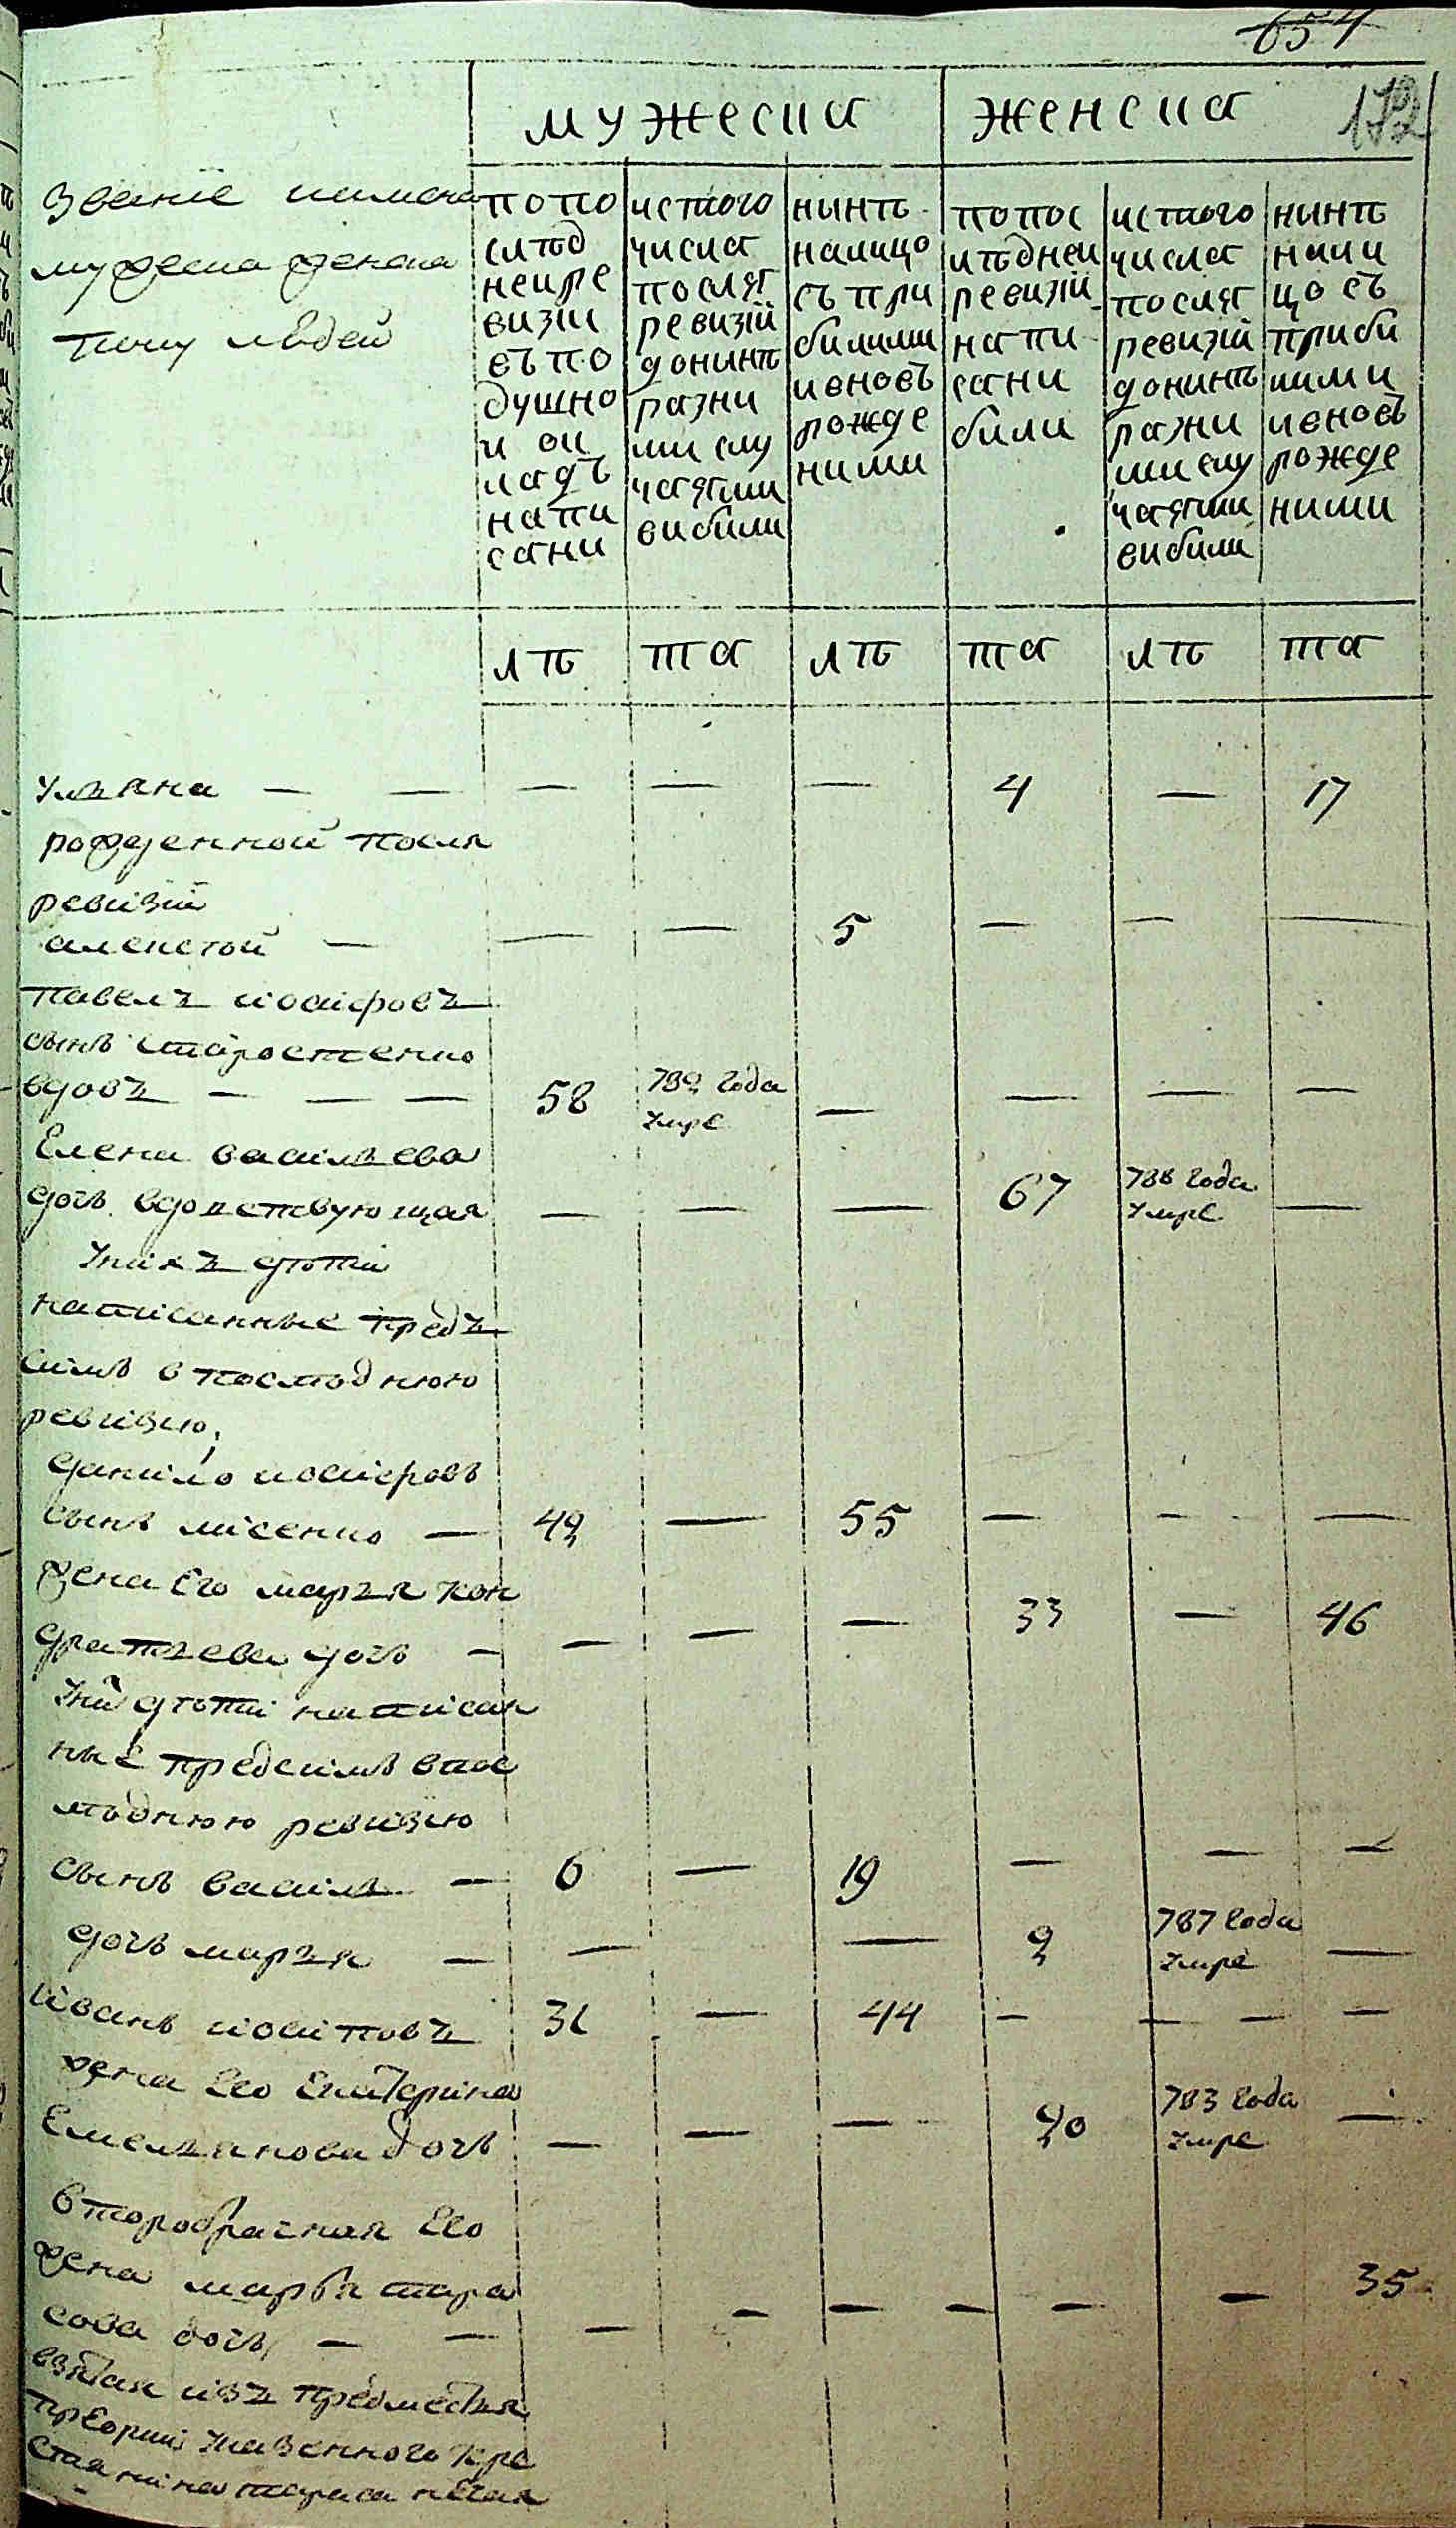 654
172
мужеска женска
Званіе иимена
мужеска женска
полу людей
попо
слѣд
неи ре
визіи
въ по
душно
и ок
ладъ
напи
сани
истого
числа
после
ревизіи
до нинѣ
разни
ми слу
чаями
вибили
нынѣ
налицо
съ при
билими
и новъ
рожде
ними
попос
лѣдней
ревизіи
напи
сани
били
истого
числа
после
ревизіи
до нинѣ
разни
ми слу
чаями
вибили
нынѣ
нали
цо съ
приби
лими
и новъ
рожде
ними
лѣ та лѣ та лѣ та
Ульяна — — — — — 4 — 17
рожденной после
ревизіи
алексѣй — — — 5 — — —
павелъ иосифовъ
сынъ
вдовъ — — — 58 789 года — — — —
умре
Елена васильева
дочь вдовствующая — — — 67 788 года —
умре
у нихъ дѣти
написанные предъ
симъ в последнюю
ревизию
данило иосифовъ
сынъ лисенко — 42 — 55 — — —
жена Его марья кон
дратьева дочь — — — — 33 — 46
у ни дѣти написан
ные предсимъ впос
лѣднюю ревизию
сынъ василь — 6 — 19 — — —
дочь марья — — — 9 787 года —
умре
иванъ иосиповъ 31 — 44 — — —
жена Его Екатерина
Емельянова дочь — — — 40 783 года —
умре
второбрачная Его
жена марѳа тара
сова дочь — — — — — — — — 35
взятая изъ предместья
казенного кре
стянина тараса